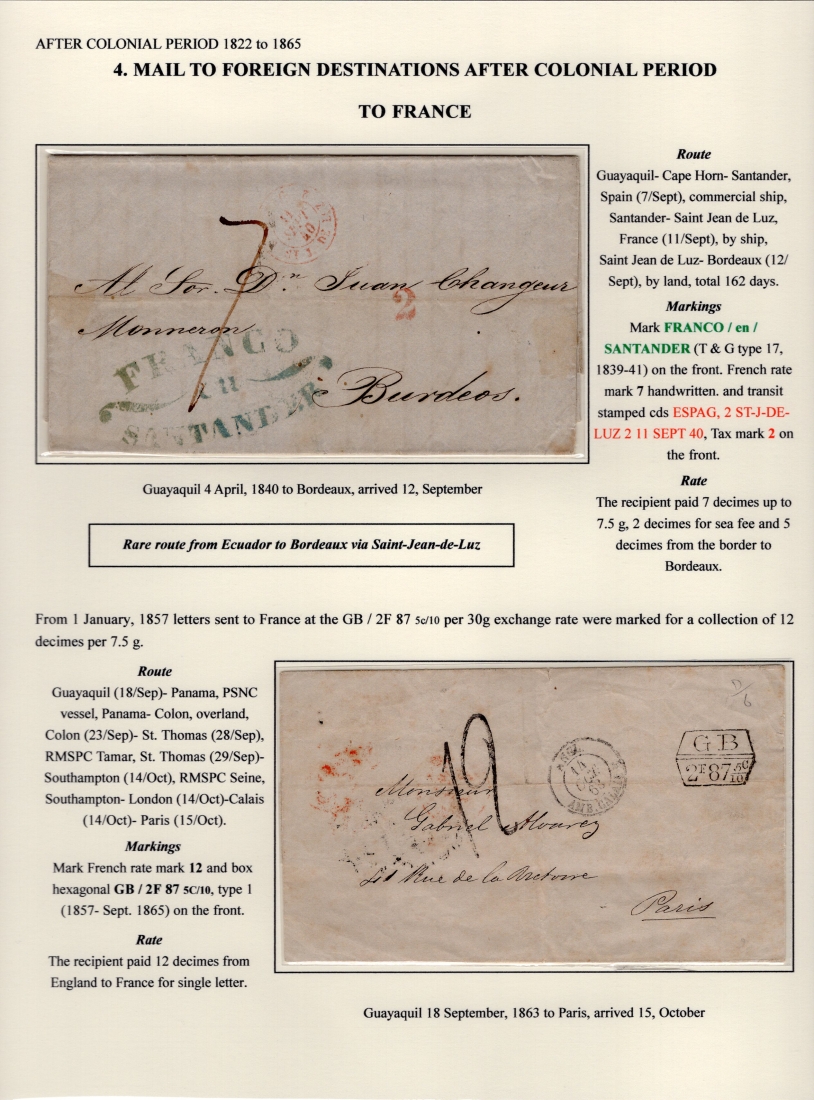 AFTER COLONIAL PERIOD 1822 to 1865
4. MAIL TO FOREIGN DESTINATIONS AFTER COLONIAL PERIOD
TO FRANCE
7
2
Al Sor. Dn Juan Changeur
Monneron
Burdeos.
FRANCO
en
SANTANDER
Guayaquil 4 April, 1840 to Bordeaux, arrived 12, September
Rare route from Ecuador to Bordeaux via Saint-Jean-de-Luz
Route
Guayaquil- Cape Horn- Santander,
Spain (7/Sept), commercial ship,
Santander- Saint Jean de Luz,
France (11/Sept), by ship,
Saint Jean de Luz- Bordeaux (12/
Sept), by land, total 162 days.
Markings
Mark FRANCO / en /
SANTANDER (T & G type 17,
1839-41) on the front. French rate
mark 7 handwritten. and transit
stamped cds ESPAG, 2 ST-J-DE-
LUZ 2 11 SEPT 40, Tax mark 2 on
the front.
Rate
The recipient paid 7 decimes up to
7.5 g, 2 decimes for sea fee and 5
decimes from the border to
Bordeaux.
From 1 January, 1857 letters sent to France at the GB / 2F 87 5c/10 per 30g exchange rate were marked for a collection of 12
decimes per 7.5 g.
Route
Guayaquil (18/Sep)- Panama, PSNC
vessel, Panama- Colon, overland,
Colon (23/Sep)- St. Thomas (28/Sep),
RMSPC Tamar, St. Thomas (29/Sep)-
Southampton (14/Oct), RMSPC Seine,
Southampton- London (14/Oct)-Calais
(14/Oct)- Paris (15/Oct).
Markings
Mark French rate mark 12 and box
hexagonal GB / 2F 87 5C/10, type 1
(1857- Sept. 1865) on the front.
Rate
The recipient paid 12 decimes from
England to France for single letter.
12
GB
2F 87 5C/10
AMB. CALAIS
Monsieur
Gabriel Alvarez
Rue de la
Paris
Guayaquil 18 September, 1863 to Paris, arrived 15, October